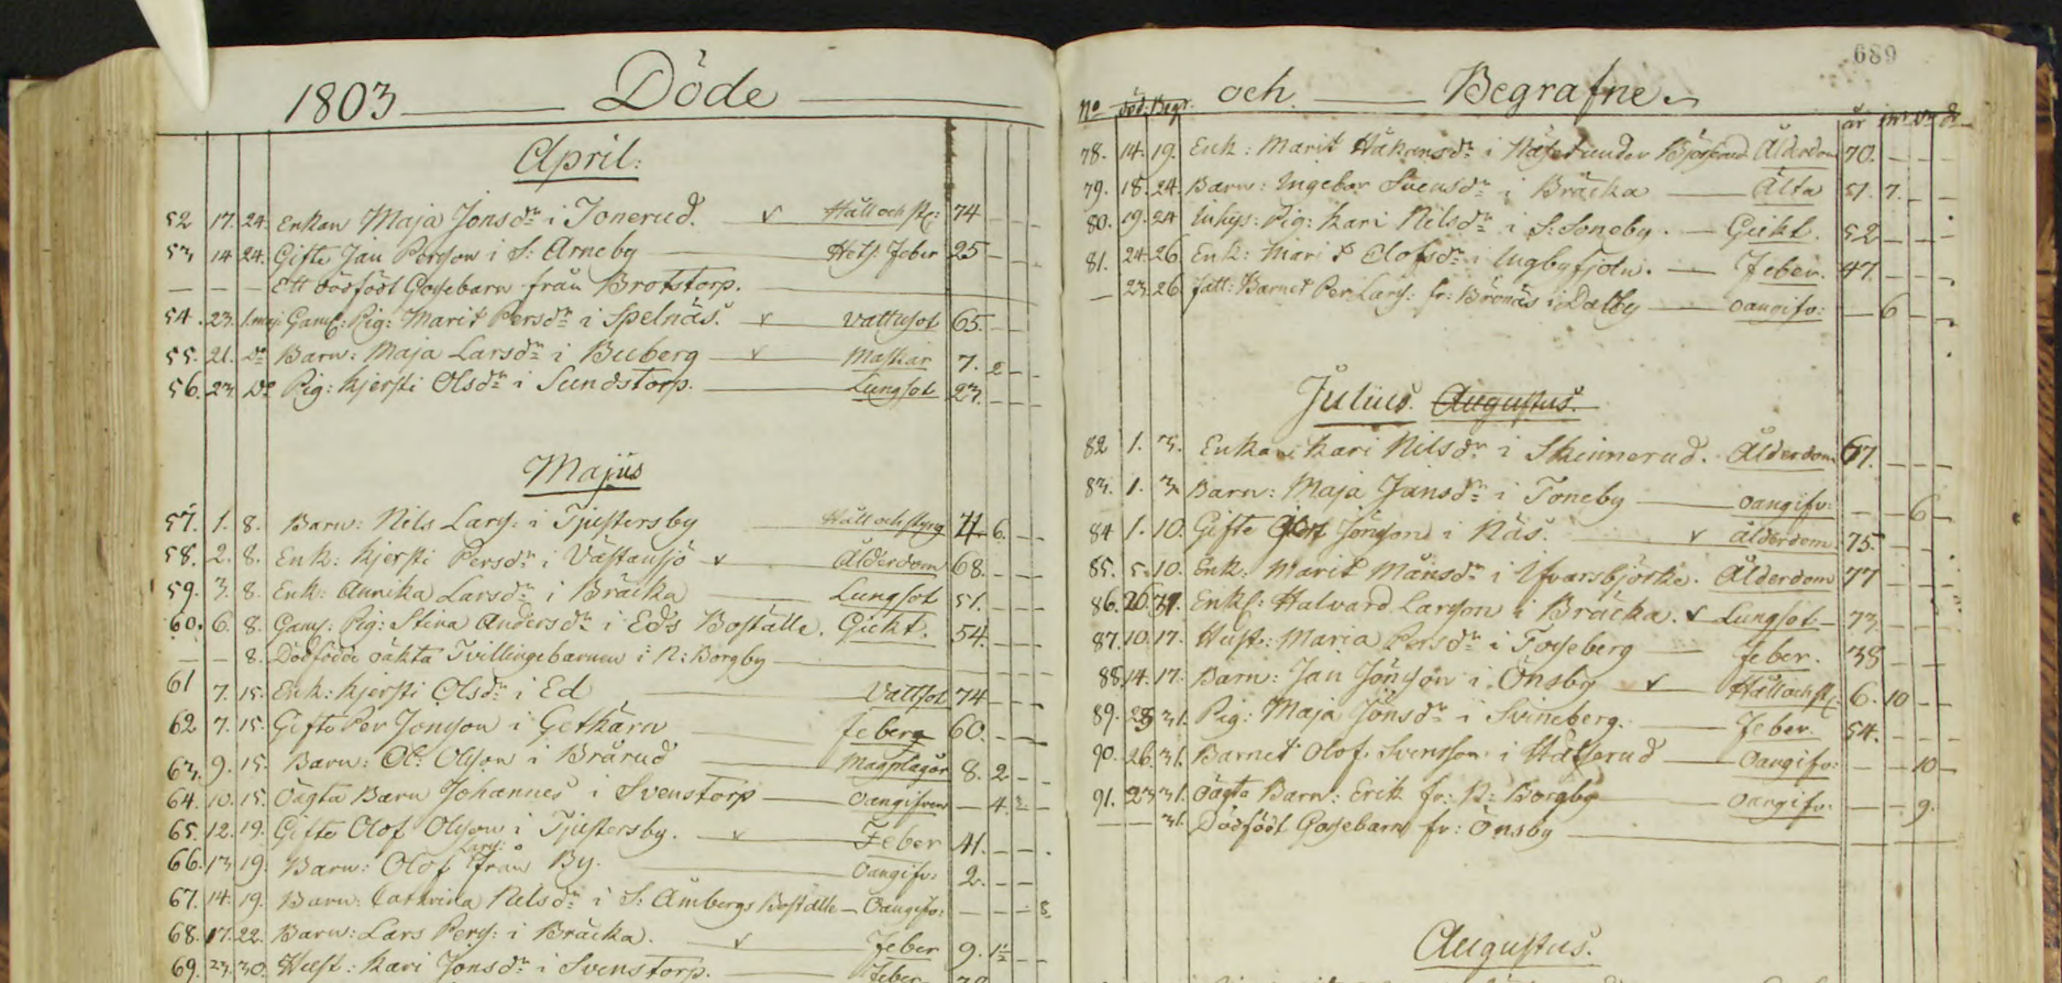 1803 Döde
April:
52 17. 24. Enkan Maja Jonsdr i Jonerud. Håll och st: 74 - - -
53 14 24. Gifte Jan Persson i S: Arneby Hets: Feber 25 - - -
- - - Ett dödfödt Gossebarn från Brotstorp.
54. 23. 1.maj Gaml: Pig: Marit Persdr i Spelnäs. Vattusot 65. - -
55. 21. Do Barn: Maja Larsdr i Buberg Maskar 7. 2 - -
56. 23. Do Pig: Kjersti Olsdr i Sundstorp. Lungsot 23. - - -
Majus
57. 1. 8. Barn: Nils Lars: i Tjustersby Håll och styng 11 6. - -
58. 2. 8. Enk: Kjersti Persdr i Västansjö Ålderdom 68. - - -
59. 3. 8. Enk: Annika Larsdr i Bräcka Lungsot 51. - - -
60. 6. 8. Gaml: Pig: Stina Andersdr i Eds Boställe. Gickt. 54. - -
- - 8. Dödfödde oäkta Tvillingebarnen i N: Borgby
61 7. 15. Enk: Kjersti Olsdr i Ed Vattsot 74 - - -
62 7. 15. Gifte Per Jonsson i Getkärn feber 60. - - -
63. 9. 15. Barn: Ol: Olsson i Brårud Magplågor 8. 2. - -
64. 10. 15. Oägta Barn Johannes i Svenstorp Oangifven - 4. -
65. 12. 19. Gifte Olof Olsson i Tjustersby. Feber 41. - - .
66. 13 19. Barn: Olof Lars: från By. Oangifv: 2. - -
67. 14. 19. Barn: Cathrina Nilsdr i S: Åmbergs Boställe - Oangifv: - - - 8.
68. 17. 22. Barn: Lars Pers: i Bräcka. Feber 9. 1½ - -
69. 23. 30. Hust: Kari Jonsdr i Svenstorp. Feber
689
och Begrafne.
No död. Begr. år mr vr dr
78. 14. 19. Enk: Marit Håkansdr i Näset under Ålderdom 70. - - -
79. 18. 24. Barn: Ingebor Svensdr i Bräcka Älta 51. 7. - -
80. 19. 24 Inhys: Pig: Kari Nilsdr i S: Soneby. Gickt. 52 - - -
81. 24. 26. Enk: Marit Olofsdr i Ingbyfjoln. Feber. 47. - - -
- 23. 26. fatt: Barnet Per Lars: fr: Brönäs i Dalby oangifv: - 6 - -
Julius. Augustus.
82 1. 3. Enkan Kari Nilsdr i Skinnerud. Ålderdom 67. - - -
83. 1. 3. Barn: Maja Jansdr i Toneby oangifv: - - 6 -
84 1. 10. Gifte Jon Jönsson i Näs. ålderdom. 75. - -
85. 5. 10. Enk: Marit Månsdr i Ifvarsbjörke. Ålderdom 77 - - -
86. 26. 31. Enkl: Halvard Larsson i Bräcka. Lungsot - 73. - - -
87. 10. 17. Hust: Maria Persdr i Fosseberg feber. 38 - - -
88. 14. 17. Barn: Jan Jönsson i Önsby Håll och st: 6. 10 - -
89. 28 31. Pig: Maja Jönsdr i Svineberg. Feber. 54. - - -
90. 26. 31. Barnet Olof Svensson i Oangifv: - - 10 -
91. 23 31. Oägta Barn: Erik fr: N: Borgby oangifv: - - 9.
- - 31. Dödfödt Gossebarn fr: Önsby
Augustus.